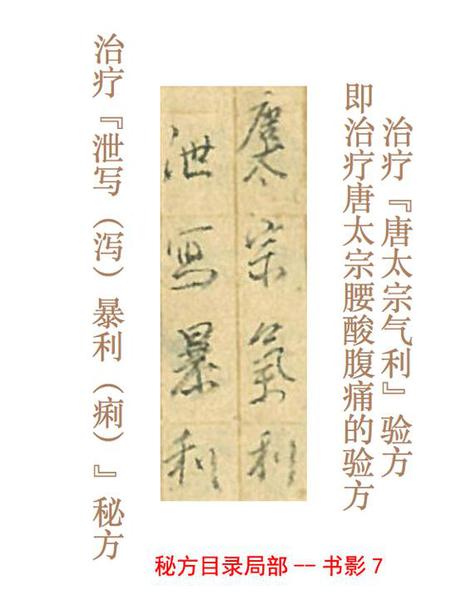 治疗『唐太宗气利』验方
即治疗唐太宗腰酸腹痛的验方
唐太宗氣利
泄写暴利
治疗『泄写（泻）暴利（痢）』秘方
秘方目录局部 -- 书影 7